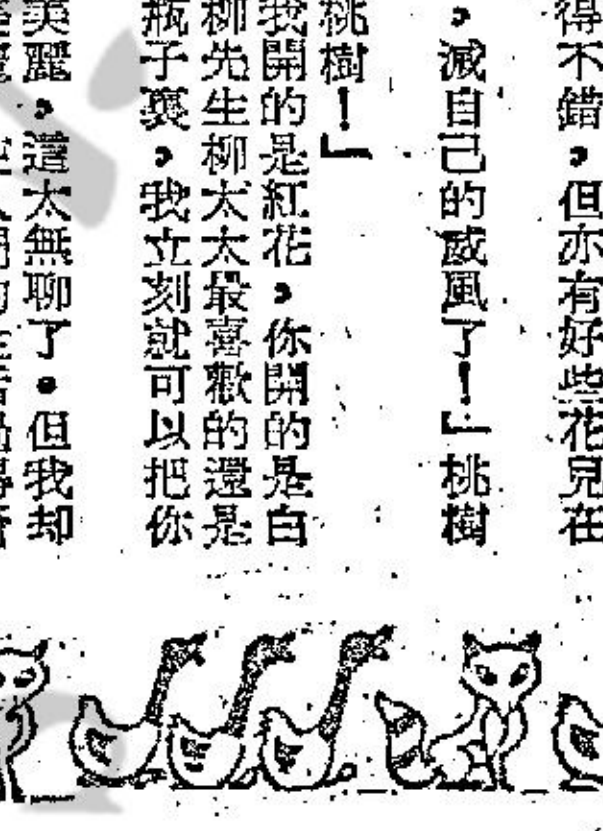 得不錯，但亦有好些花見在
，滅自己的威風了！」桃樹
桃樹！」
我開的是紅花，你開的是白
柳先生柳太太最喜歡的還是
瓶子裏，我立刻就可以把你
美麗，這太無聊了。但我却